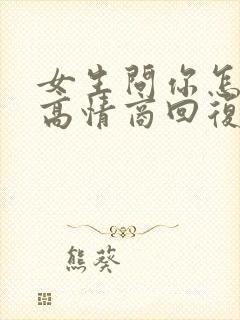 女生問你怎
高情商回復
熊葵